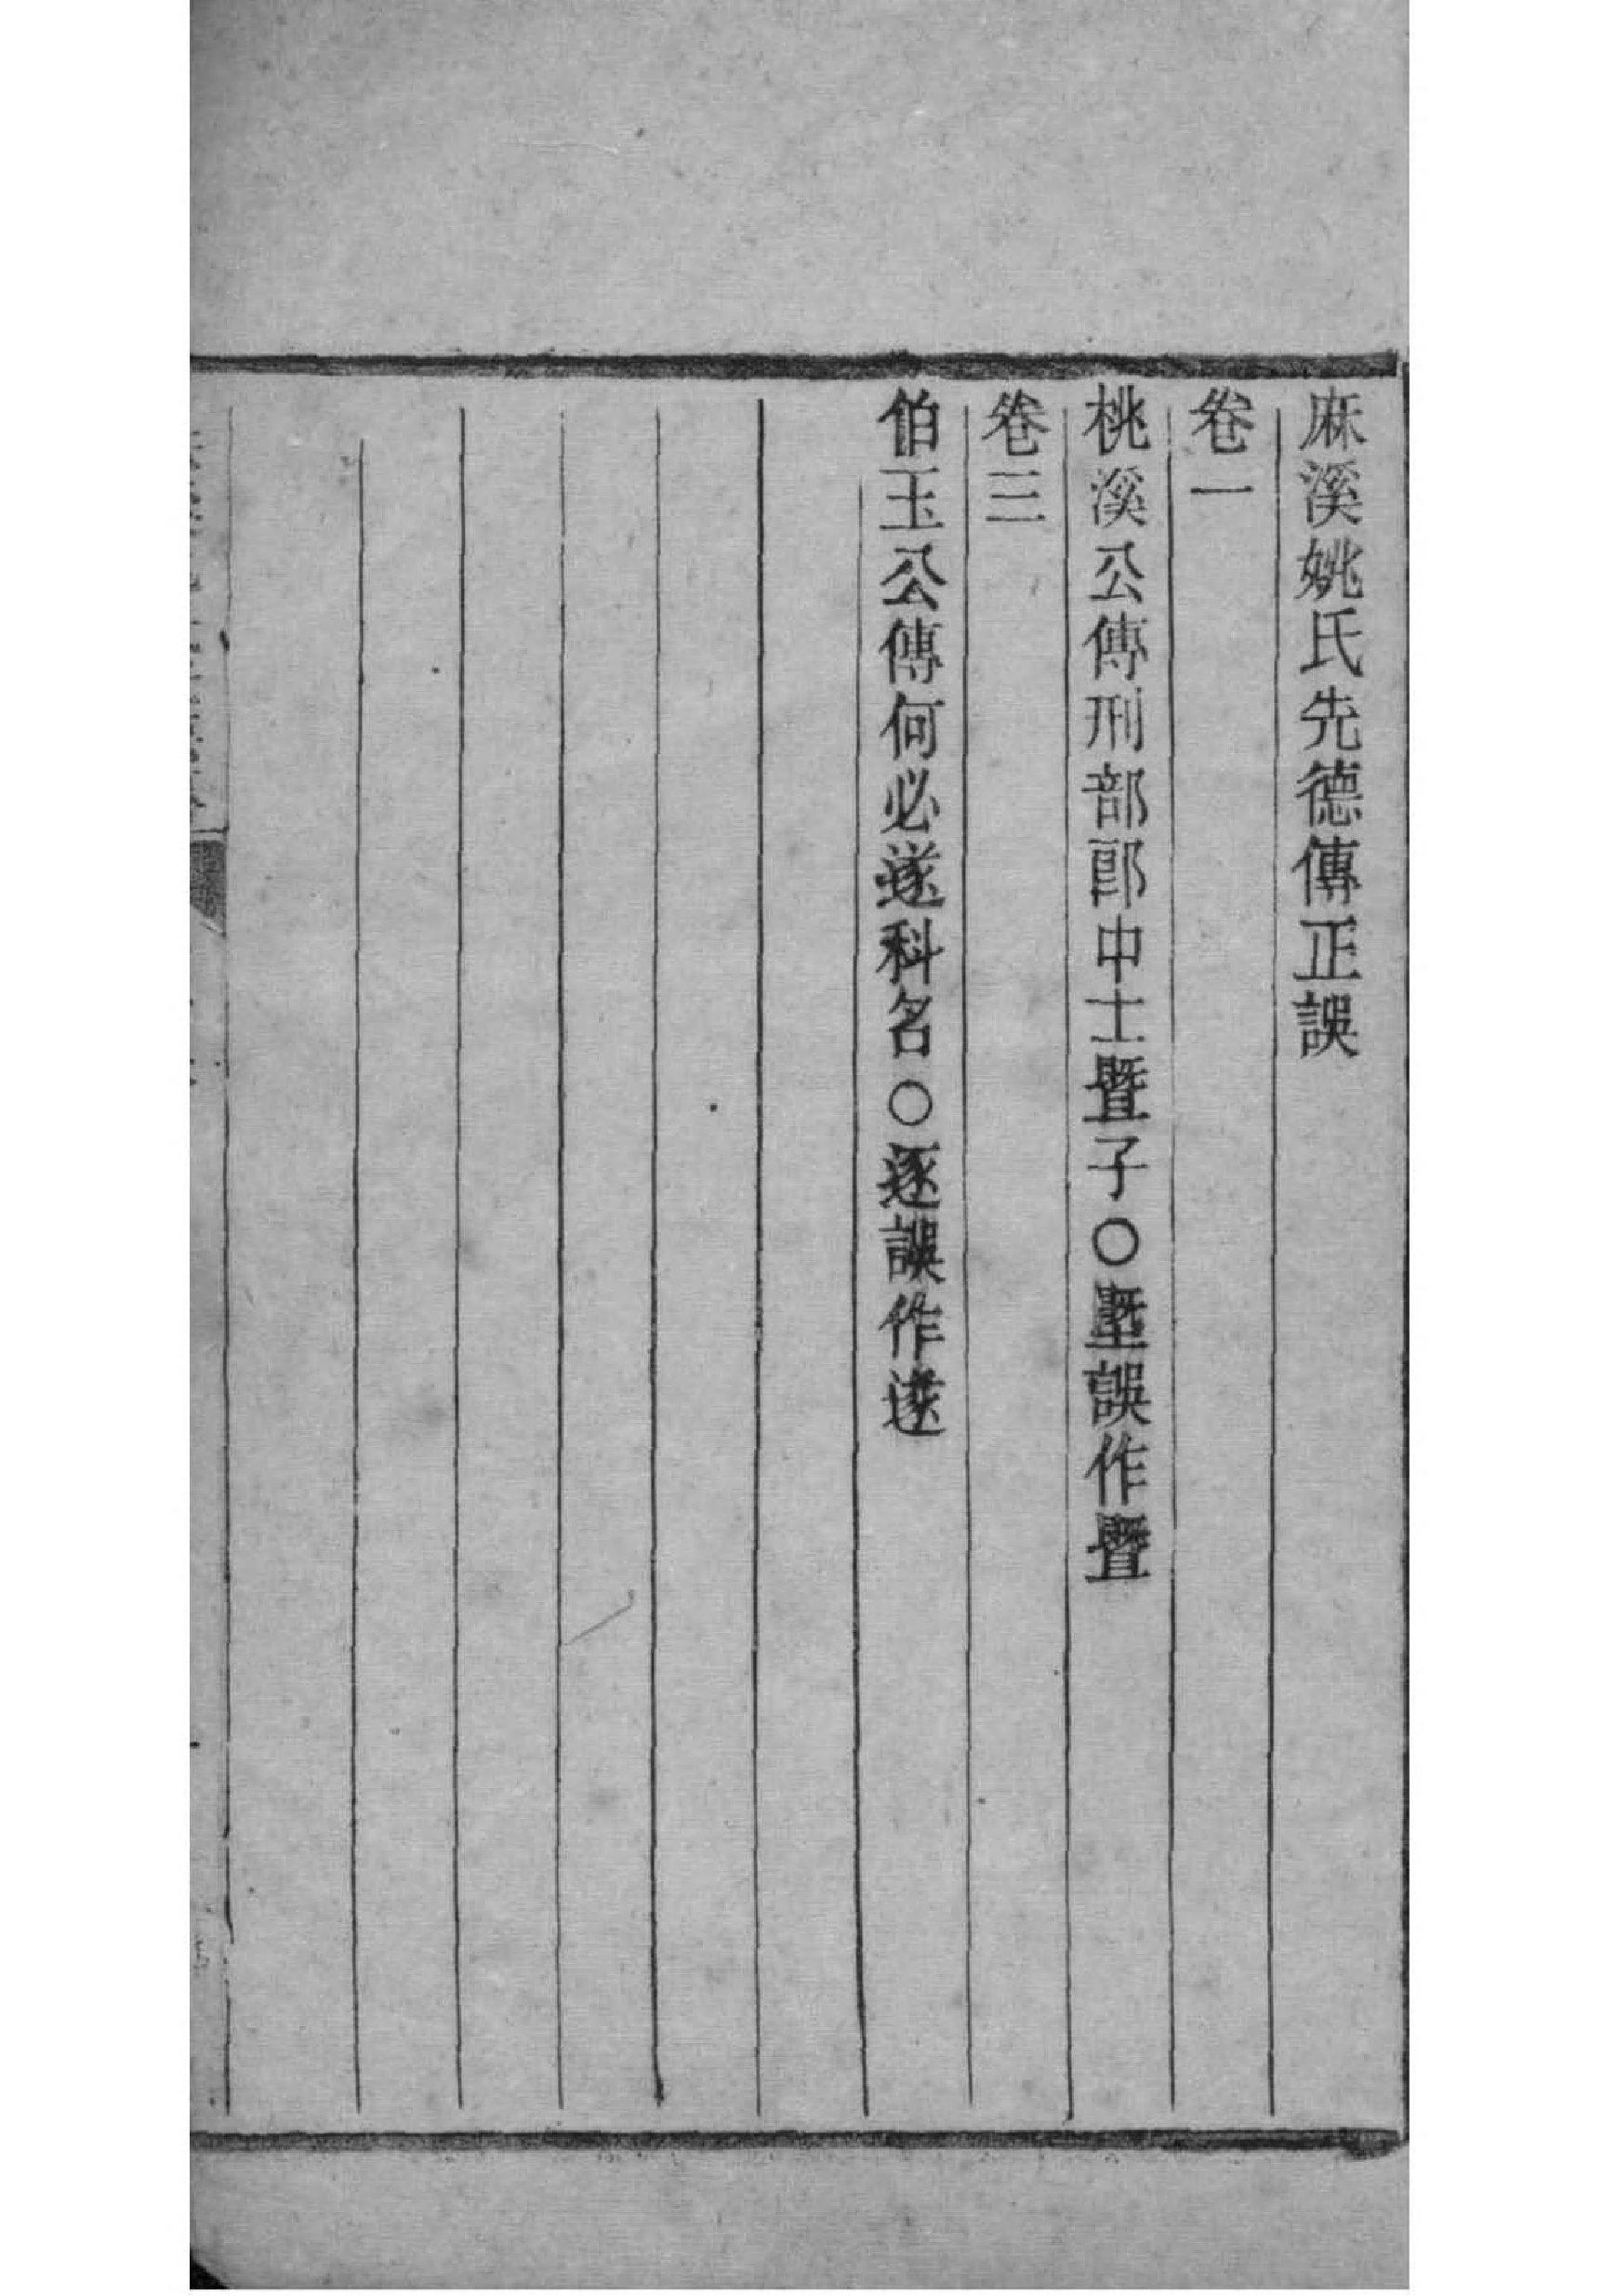 麻溪姚氏先德傳正誤
卷一
桃溪公傳刑部郎中士暨子○塈誤作暨
卷三
伯玉公傳何必遂科名○逐誤作遂